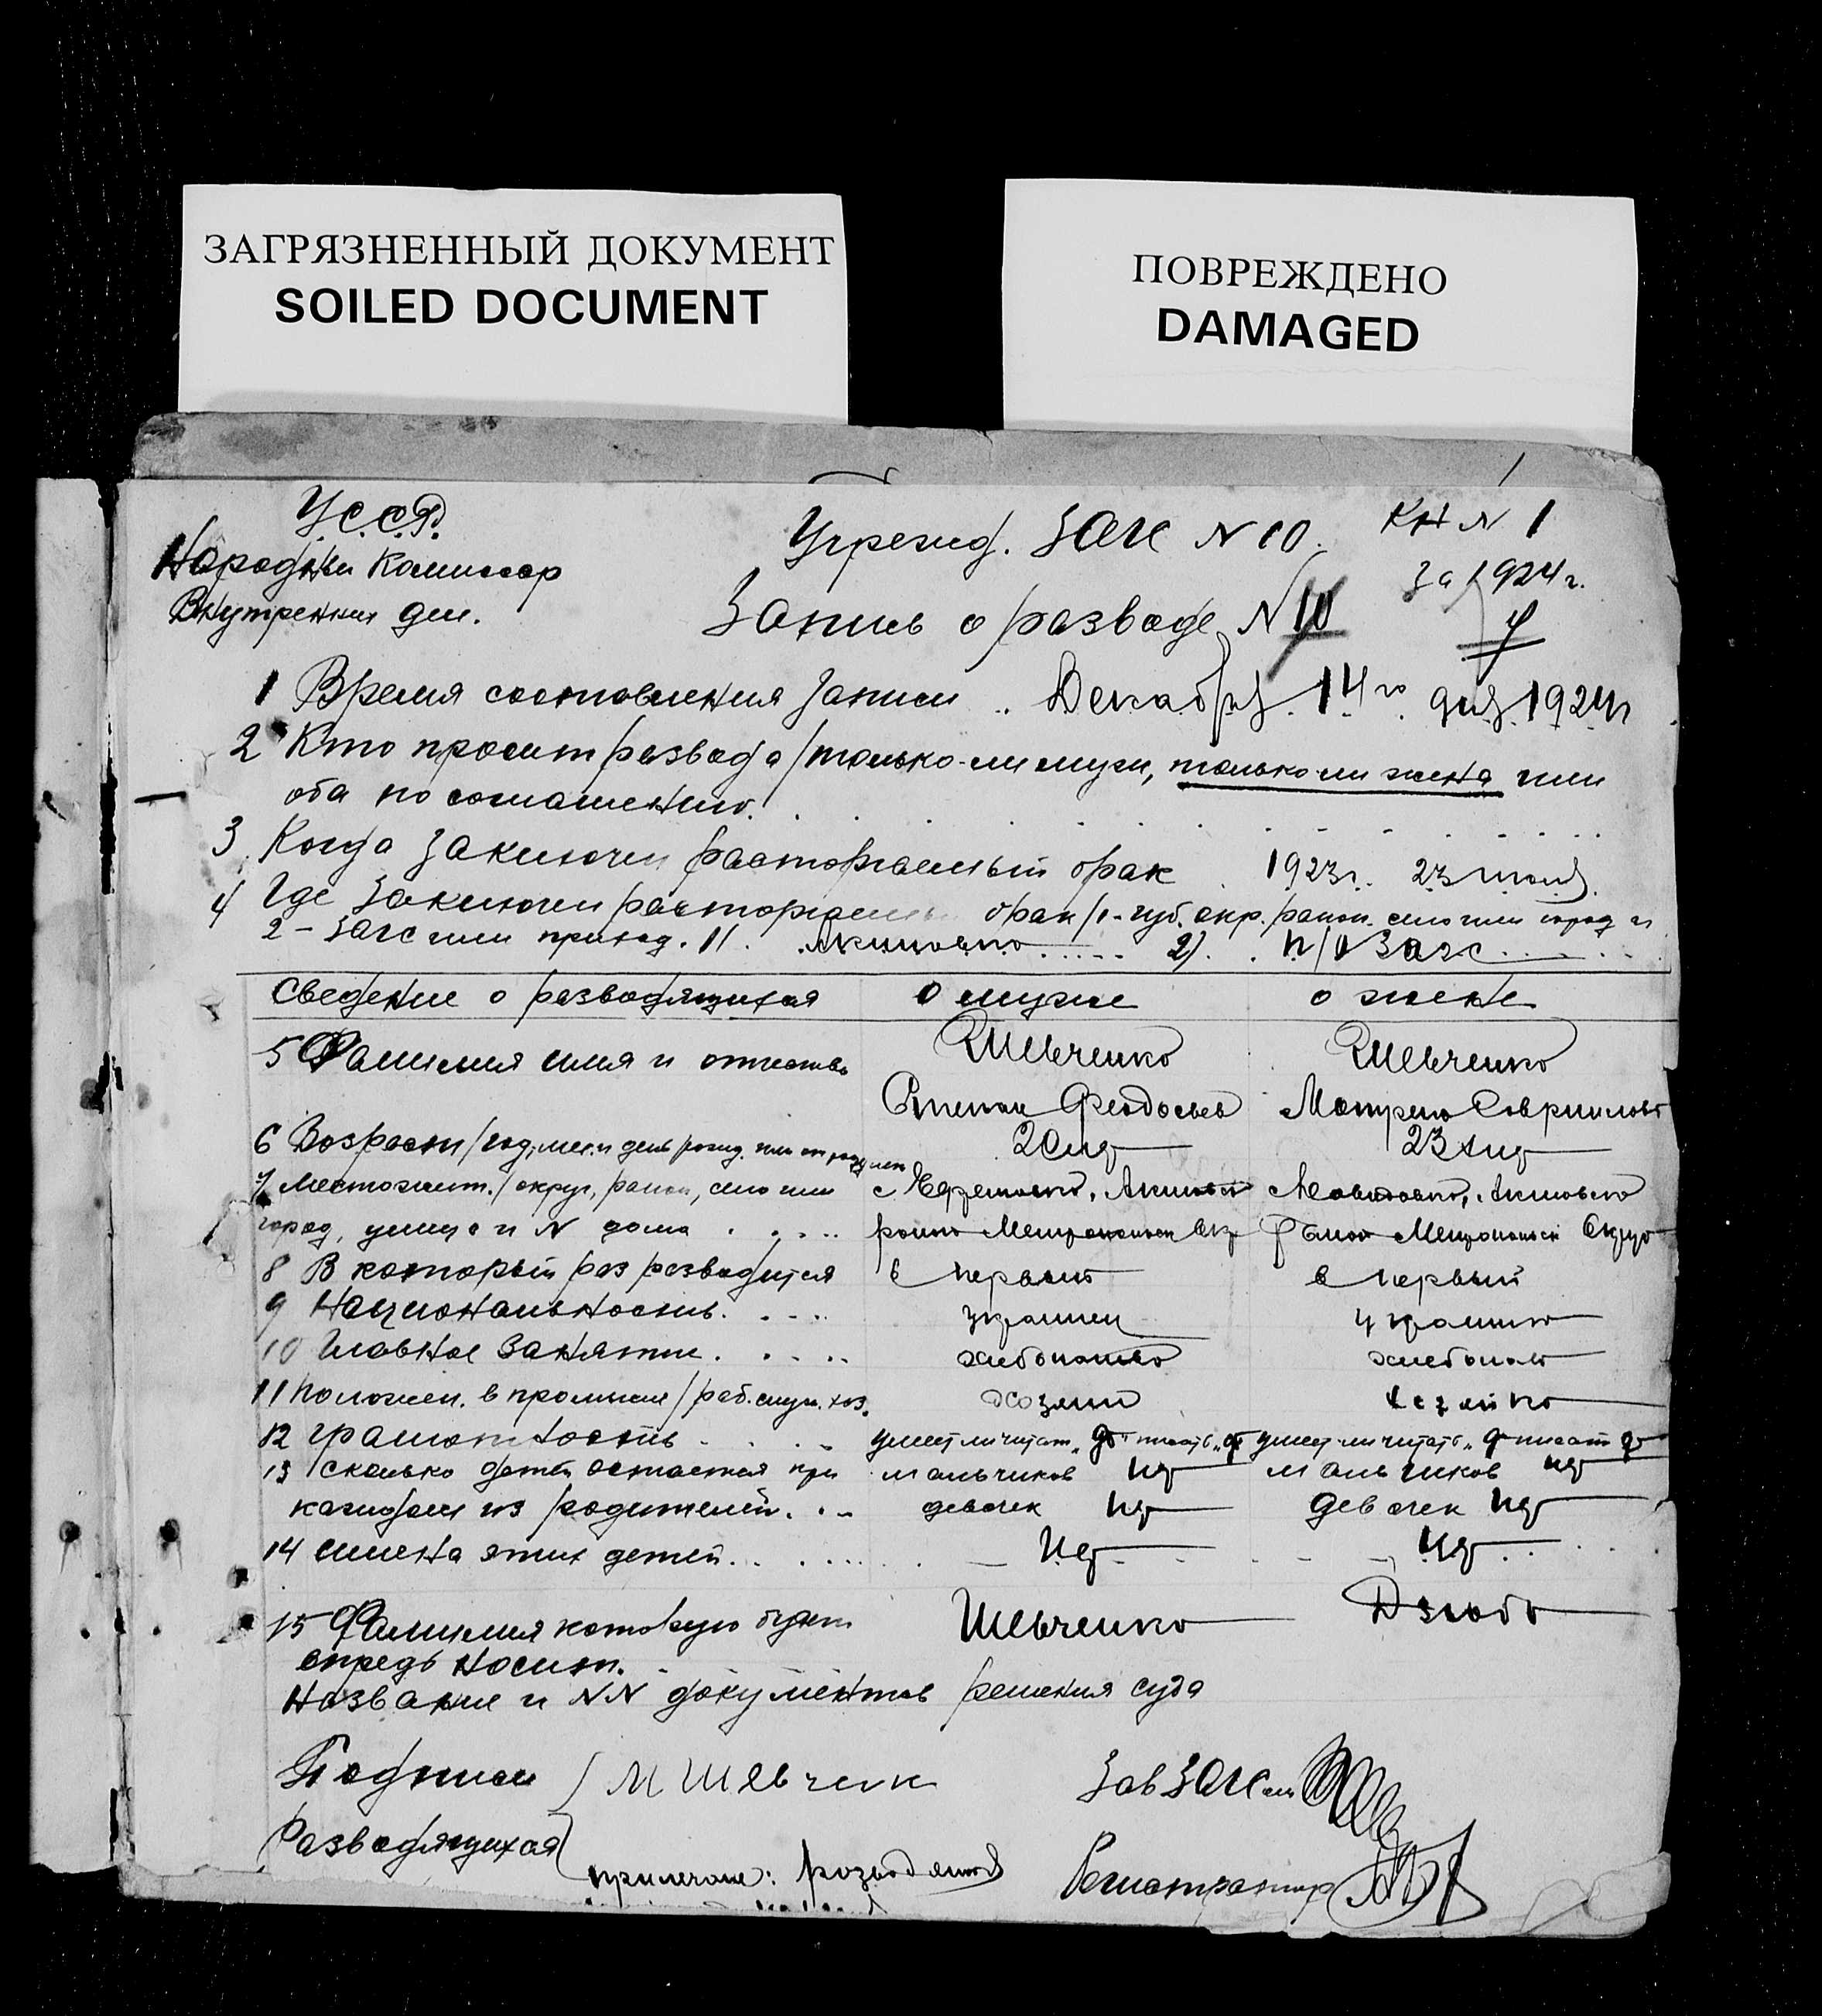 ЗАГРЯЗНЕННЫЙ ДОКУМЕНТ
SOILED DOCUMENT
ПОВРЕЖДЕНО
DAMAGED
У.С.С.Р.
Учрежд. ЗАГС N 10.
КН N 1
Народны Комиссар
за 1924 г.
Внутренних дел.
Запись о разводе N 10
1 Время составления записи .. Декабря 14го дня 1924г
2 Кто просит развода/только-ли муж, только-ли жена или
оба по соглашению.
3 Когда заключен расторгаемый брак 1923г. 23 июля
4 Где заключен расторгаемы брак/1-губ. окр. район. село или город и
2-ЗАГС или приход. 1). Акимовка 2). п/о Загс
Сведение о разводящихся
о муже
о жене
5 Фамилия имя и отчество
Шевченко
Шевченко
Степан Феодосьев
Мотрена Гавриилова
6 Возраст/год, мес. и день рожд. или от роду лет
20 лет
23 лет
7 Местожит./округ, район, село или
Акимовск
Акимовско
город, улица и N дома
района Мелитопольск Окр
Район Мелитопольск Округ
8 В который раз разводится
в первый
в первый
9 Национальность
украинец
украинка
10 Главное занятие
хлебопаш
11 Положен. в промысле/раб. служ. хоз.
хозяин
хозяйка
12 Грамотность
умеет ли читать „да“ писать „да
умеет-ли читать „да писать да
13 Сколько детей остается при
мальчиков нет
мальчиков нет
каждом из родителей
девочек нет
девочек нет
14 имена этих детей
нет
нет
15 Фамилия которую будет
Шевченко
Дзюба
впредь носит.
Название и NN документов решения суда
Подписи
М Шевченк
Зав ЗАГСом
Разводящихся
примечание:
Регистратор